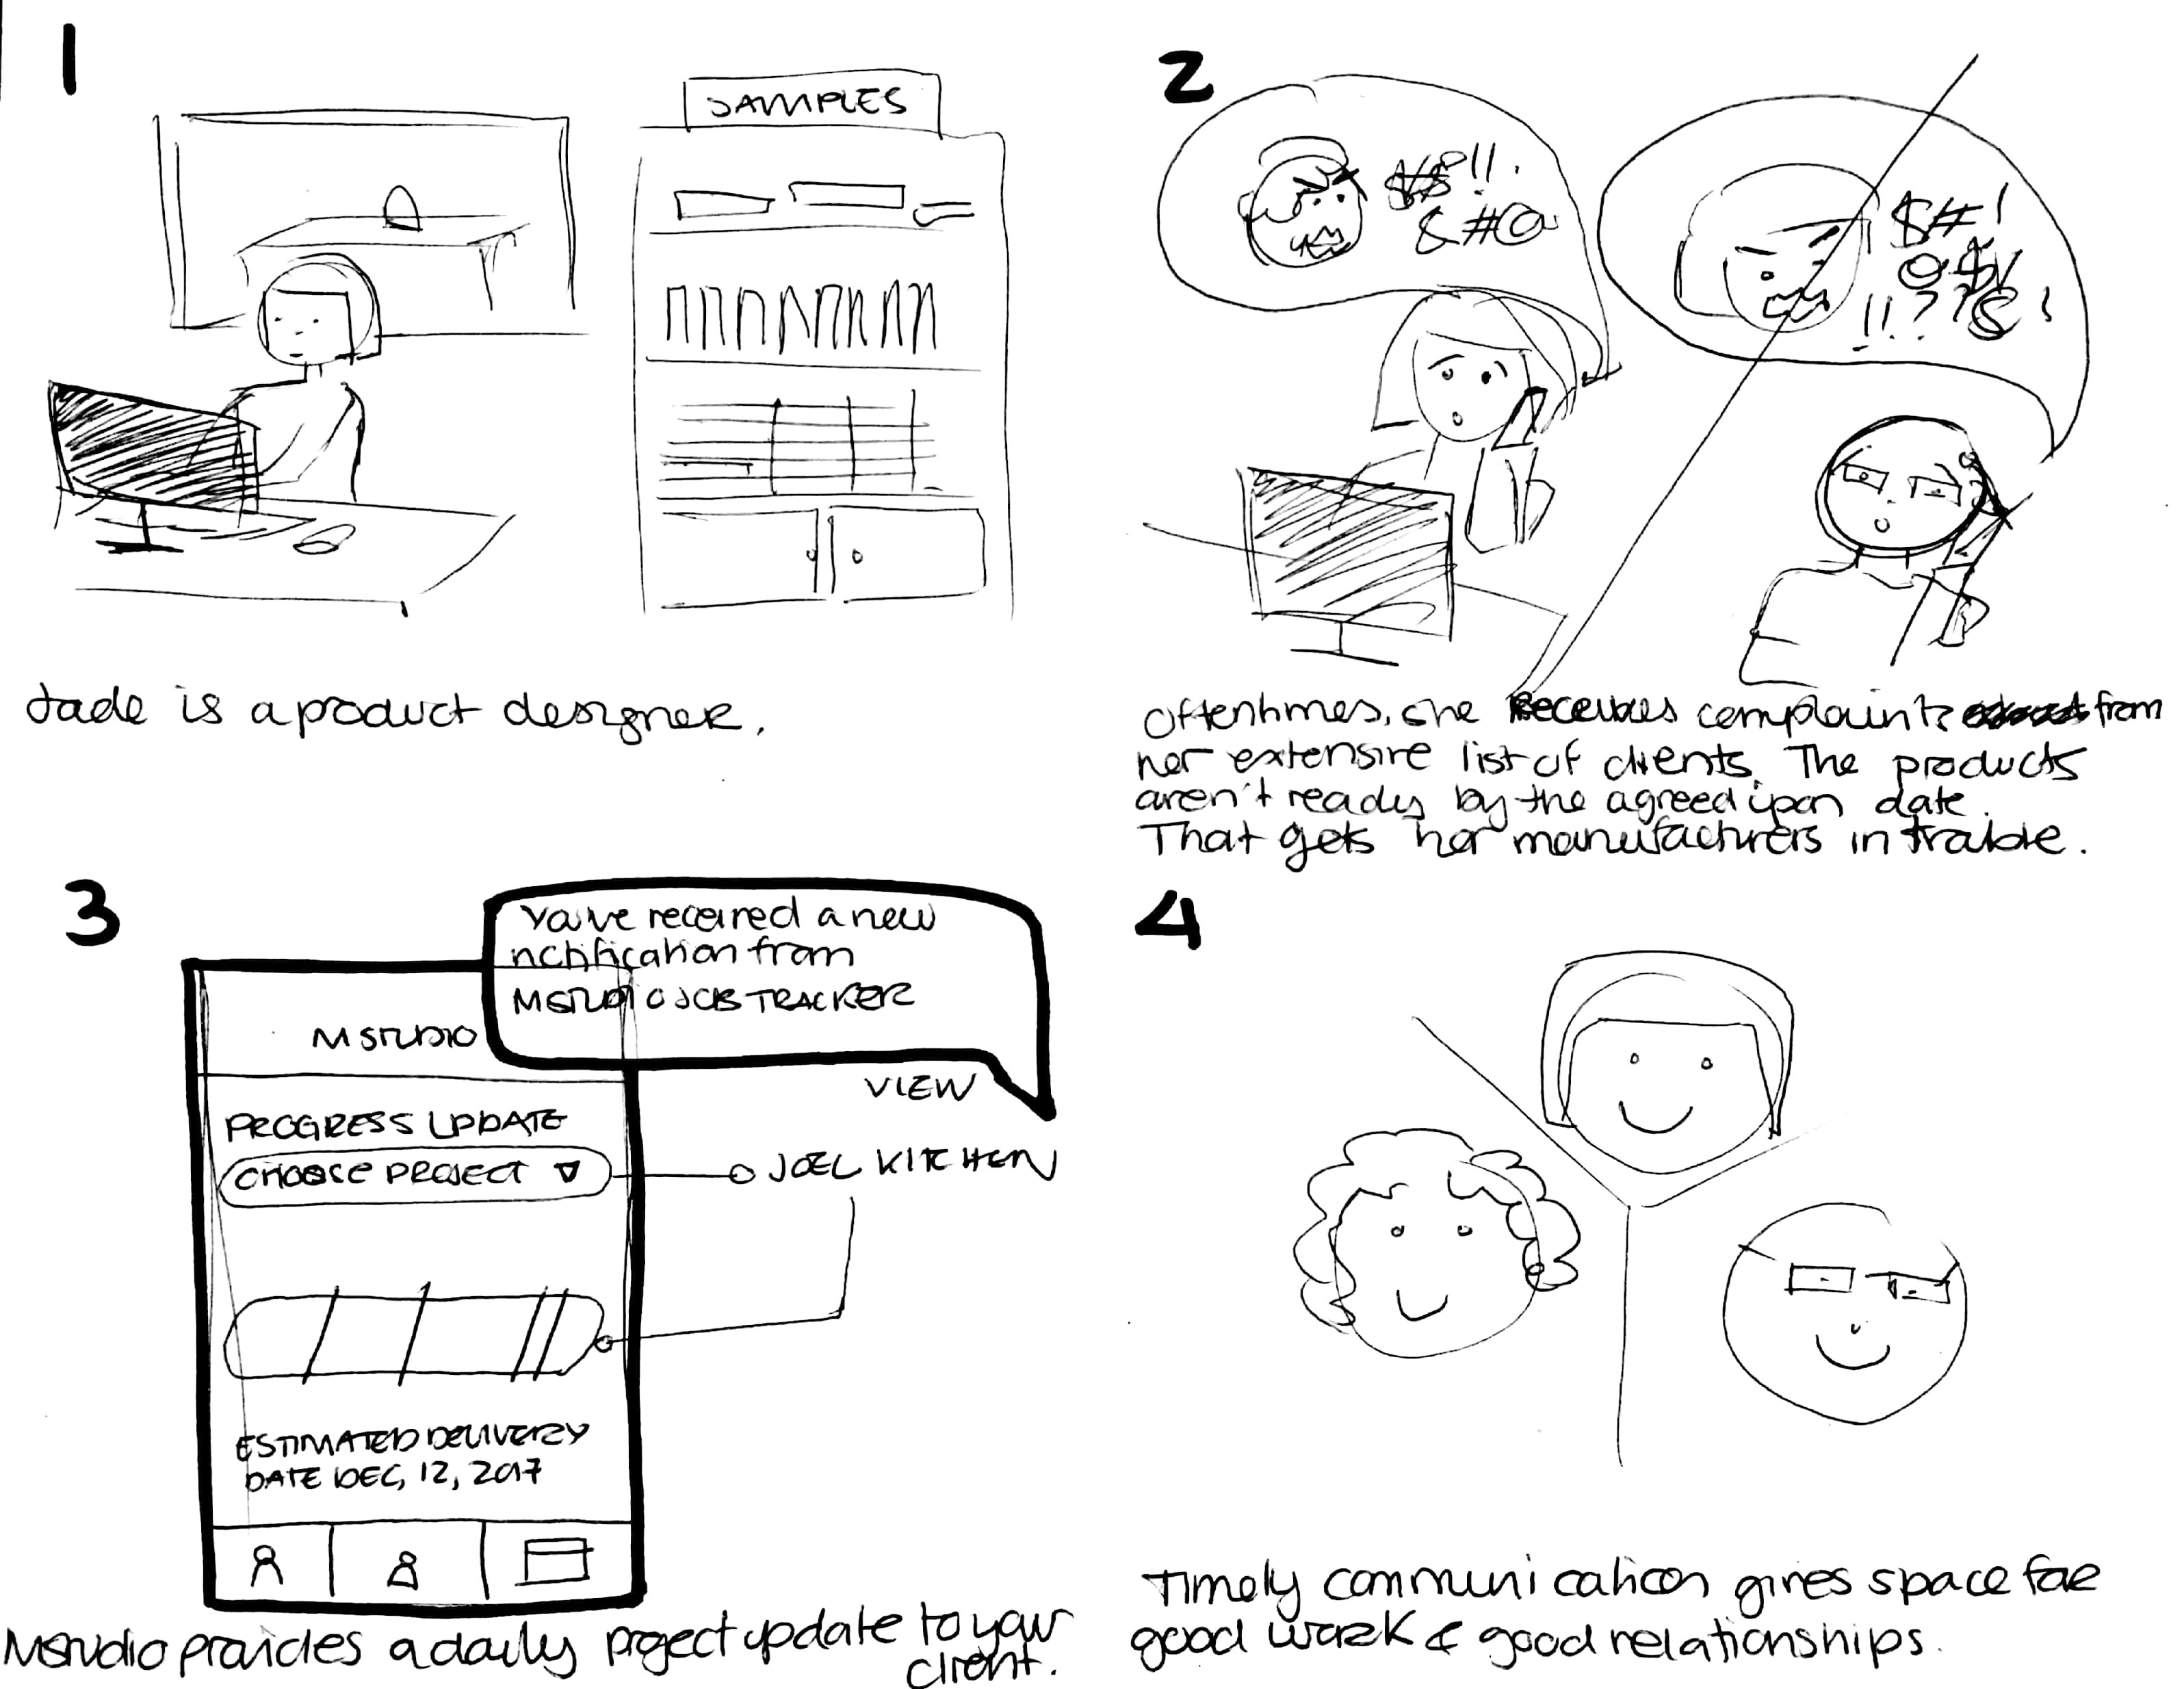 1
SAMPLES
Jade is a product designer.
2
$$!!.
&#@
$#!
@$%
!!??&!
Oftentimes, she receives complaints from
her extensive list of clients. The products
aren't ready by the agreed upon date.
That gets her manufacturers in trouble.
3
You've received a new
notification from
MSTUDIO JOB TRACKER
VIEW
MSTUDIO
PROGRESS UPDATE
CHOOSE PROJECT
JOEL KITCHEN
ESTIMATED DELIVERY
DATE DEC, 12, 2017
Mstudio provides a daily project update to your
client.
4
Timely communication gives space for
good work & good relationships.